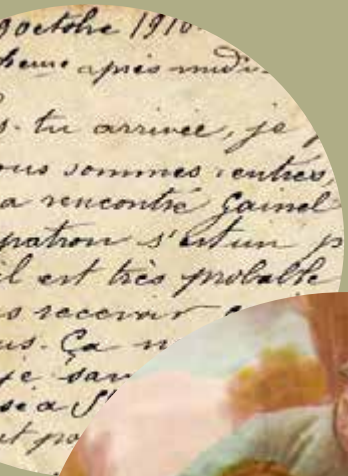 octobre 1910
heure après midi.
s-tu arrivée, je
sommes rentrés,
a rencontré Gainel
patron s'est un p
il est très probable
s recevoir
us. Ça n
je sav
se a S'
t pa